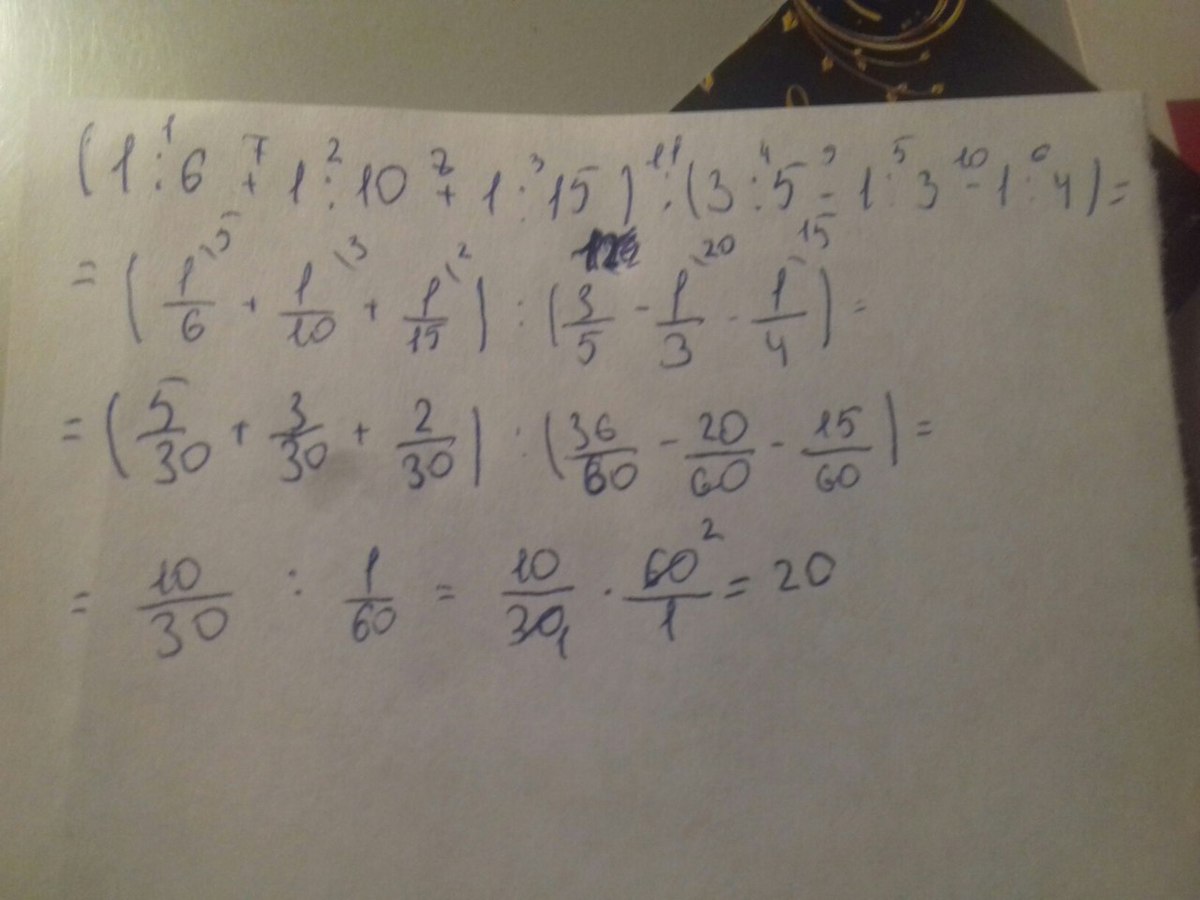 (1 :¹ 6 +⁷ 1 :² 10 +⁷ 1 :³ 15) :¹¹ (3 :⁴ 5 -⁹ 1 :⁵ 3 -¹⁰ 1 :⁶ 4) =
= (1/6^\5 + 1/10^\3 + 1/15^\2) : (3/5 - 1/3^\20 - 1/4^\15) =
= (5/30 + 3/30 + 2/30) : (36/60 - 20/60 - 15/60) =
= 10/30 : 1/60 = 10/30₁ · 60²/1 = 20